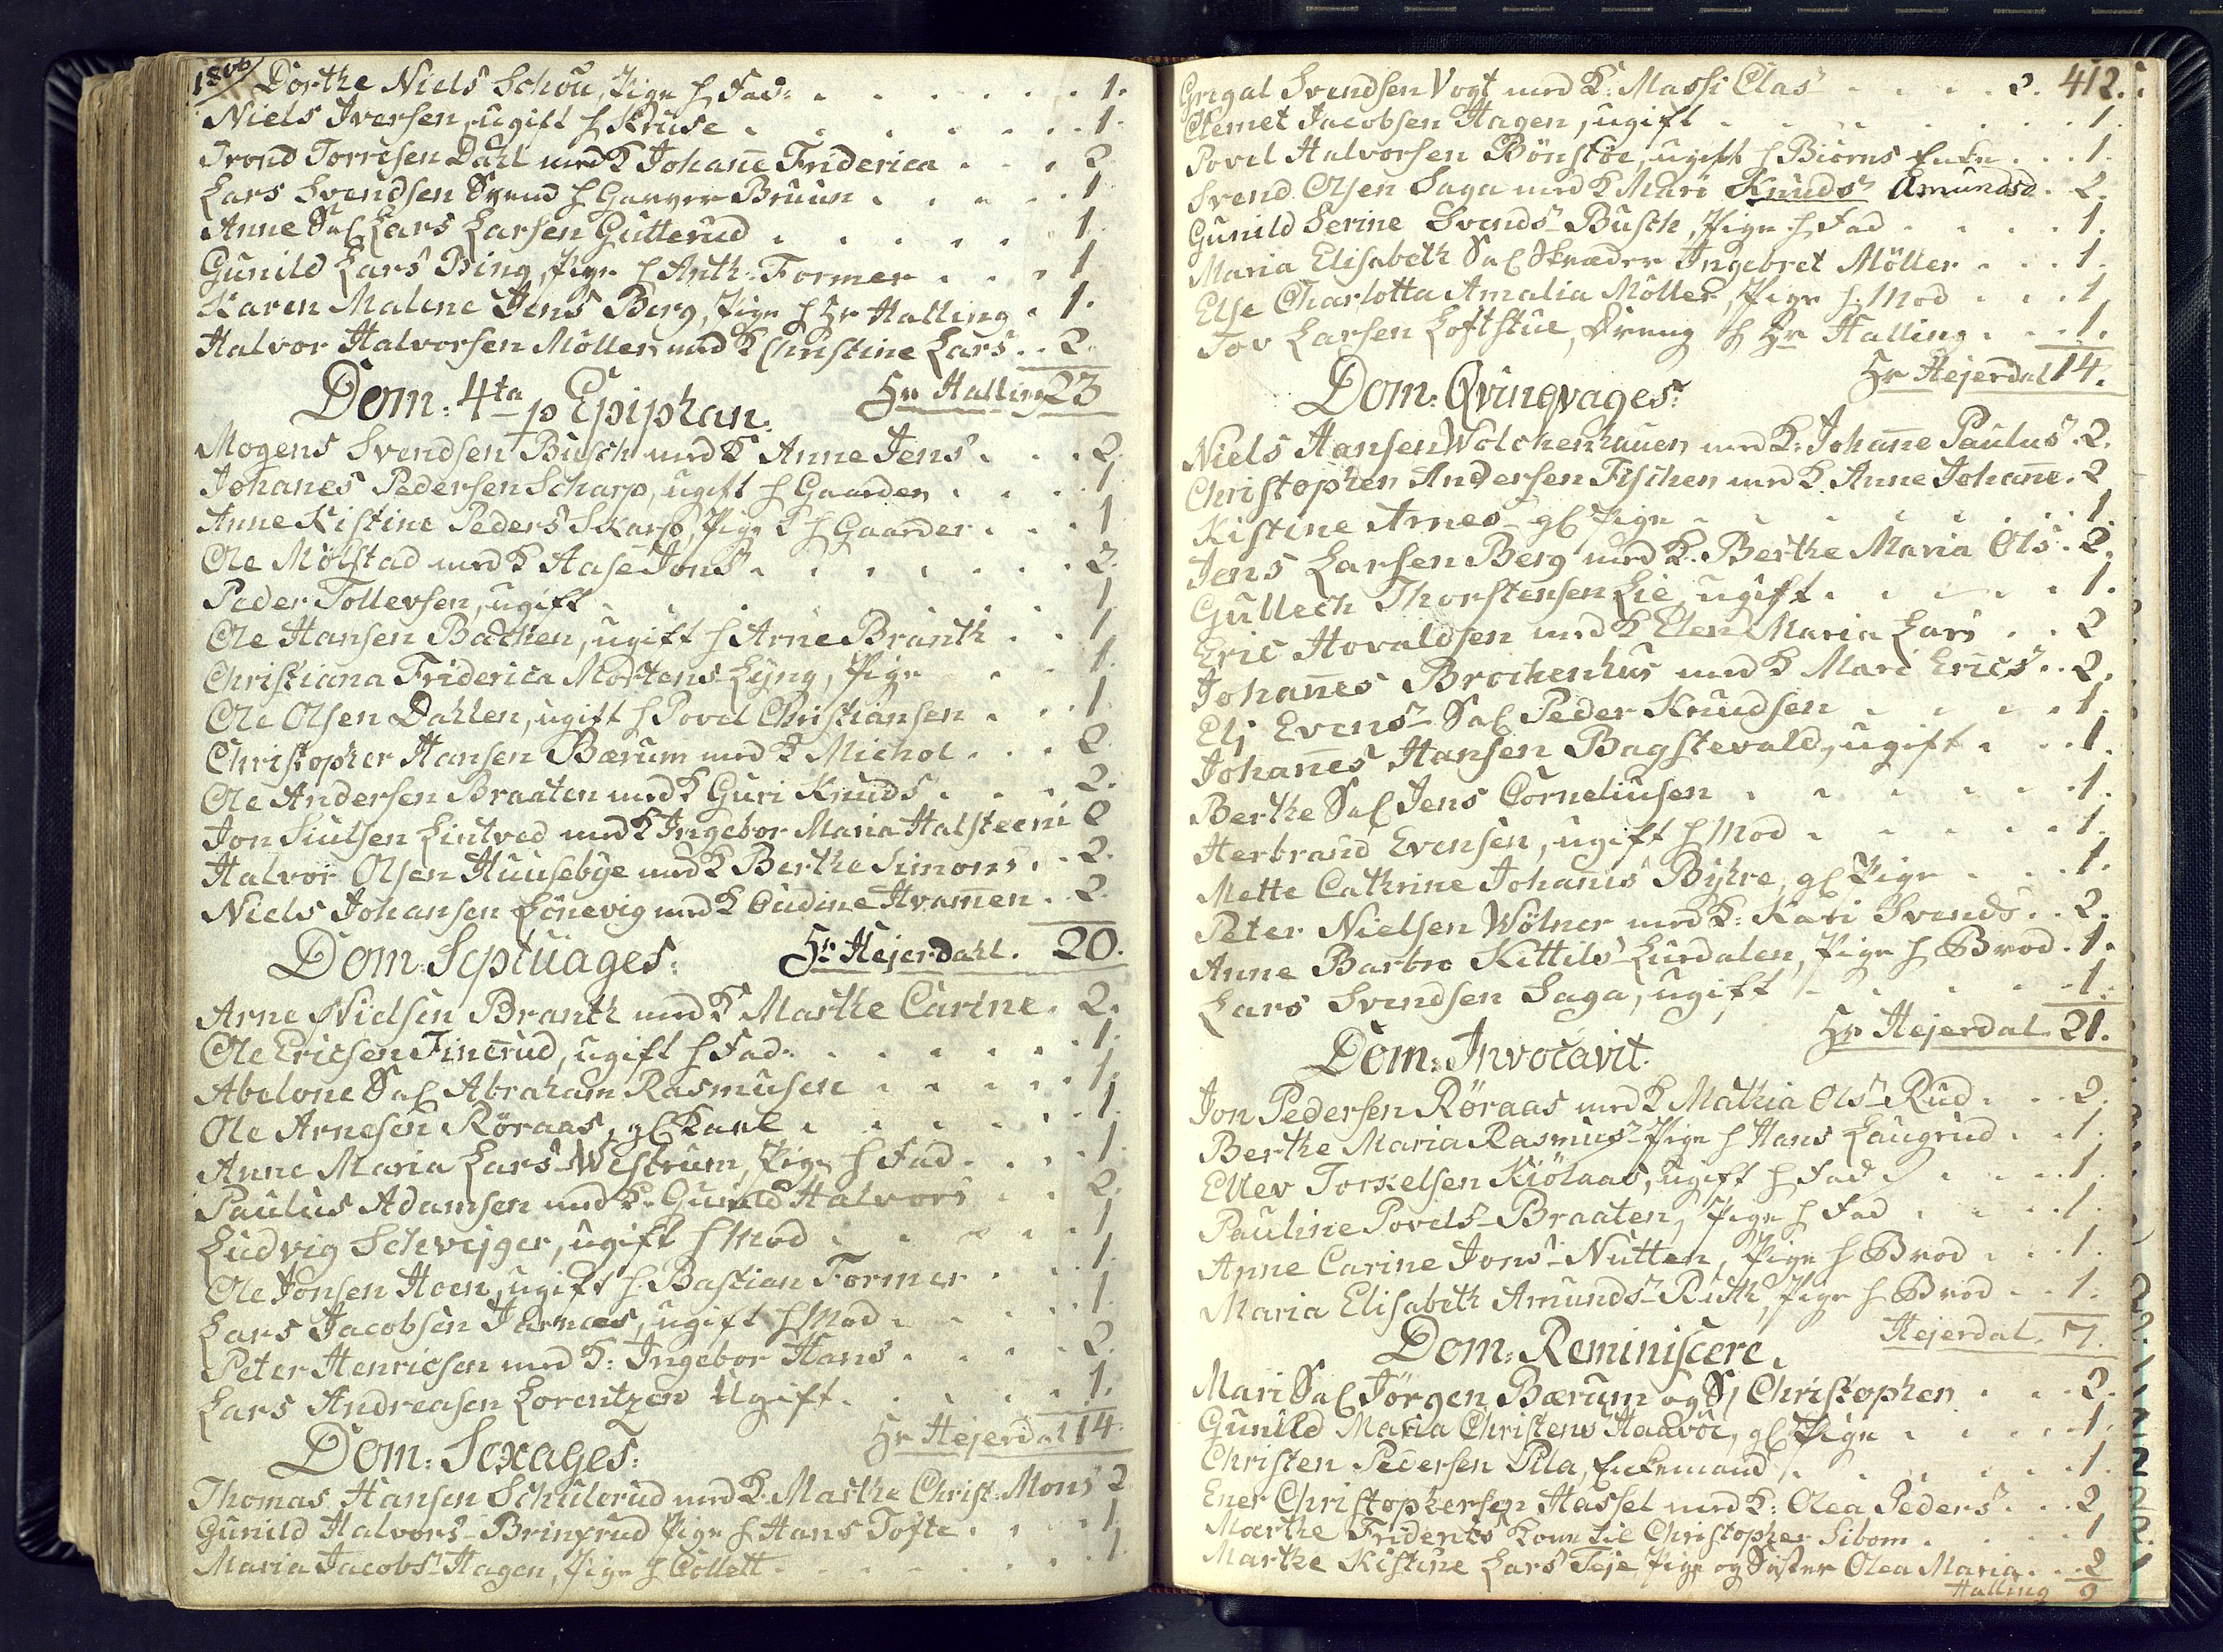 1806/ Dorthe Niels Schou, Pige h Fad: . . . . . . 1.
Niels Iversen, ugift h Kruse . . . . . . . 1.
Trond Torrisen Dahl med K Johañe Friderica . . . 2
Lars Svendsen Svend h Garver Bruun . . . . 1
Anne Sal Lars Larsen Gutterud . . . . . 1.
Gunild Lars Bing, Pige h Anth: Former . . . 1
Karen Malene Jens Berg, Pige h Hr Halling . 1.
Halvor Halvorsen Möller med K Christine Lars . . 2.
Dom: 4ta p Epiphan: Hr Halling 23
Mogens Svendsen Busch med K Anne Jens . . . 2.
Johanes Pedersen Scharp, ugift h Gaarder . . . . 1
Anne Kistine Peders Skarp, Pige h Gaarder . . . 1
Ole Mölstad med K Aase Jons . . . . . . . 2.
Peder Tollevsen, ugift . . . . . . 1
Ole Hansen Bachen, ugift h Arne Branth . . 1
Christiana Friderica Mortens Lyng, Pige . . 1.
Ole Olsen Dahlen, ugift h Povel Christiansen . . . 1.
Christopher Hansen Bærum med K Michol . . . 2
Ole Andersen Braaten med K Guri Knuds . . . 2.
Jon Siulsen Lintved med K Ingebor Maria Halsteens 2
Halvor Olsen Huusebye med K Berthe Simons . . 2.
Niels Johansen Lönevig med K Gudine Hvamen . 2.
Dom: Septuages: Hr Hejerdahl. 20.
Arne Nielsen Branth med K Marthe Carine . 2.
Ole Ericsen Finerud, ugift h Fad: . . . . . . 1.
Abelone Sal Abraham Rasmusen . . . . . 1.
Ole Arnesen Röraas, gl Karl . . . . . . 1
Anne Maria Lars Westrum, Pige h Fad . . . . 1.
Paulus Adamsen med K. Gunild Halvors . . 2.
Ludvig Schvejger, ugift h Mod . . . . . 1
Ole Jonsen Hoen, ugift h Bastian Former . . . 1.
Lars Jacobsen Jarnæs, ugift h Mod . . . . 1.
Peter Henricsen med K: Ingebor Hans . . . . 2.
Lars Andreasen Lorentzen Ugift . . . . . 1.
Dom: Sexages: Hr Hejerdal 14.
Thomas Hansen Schulerud med K Marthe Christ: Mons 2
Gunild Halvors Bringrud Pige h Hans Tofte . . . . 1.
Maria Jacobs Hagen, Pige h Collett . . . . . . . 1.
412.
Gregal Svendsen Vogt med K: Massi Clas . . . . 2.
Clemet Jacobsen Hagen, ugift . . . . . . . 1.
Povel Halvorsen Bönstöe, ugift h Biörns Enke . . . 1.
Svend Olsen Saga med K Mari Knuds Amundsd . 2.
Gunild Serine Svends Busch, Pige h Fad . . . . 1.
Maria Elisabeth Sal Skræder Ingebret Möller . . . 1.
Else Charlotta Amalia Möller, Pige h. Mod . . . 1.
Tov Larsen Loftstue, Dreng h Hr Halling . . . 1.
Dom: Qvinqvages: Hr Hejerdal 14.
Niels Hansen Wolckenhauer med K: Johañe Paulus . 2.
Christopher Andersen Fischer med K. Anne Johañe . 2
Kistine Arnes gl Pige . . . . . . 1.
Jens Larsen Berg med K. Berthe Maria Ols . 2.
Gullech Thorstensen Lie, ugift . . . . . 1.
Eric Hovaldsen med K Elen Maria Lars . . 2
Johañes Brochenhus med K Mari Erics . . 2.
Eli Evens Sal Peder Knudsen . . . . . 1.
Johañes Hansen Bagstevald, ugift . . . 1.
Berthe Sal Jens Corneliusen . . . . . . 1.
Herbrand Evensen, ugift h Mod . . . . . 1.
Mette Cathrine Johanis Bykre, gl Pige . . . 1.
Peter Nielsen Wölner med K: Kari Svends . . 2.
Anne Barbro Kittils Lurdalen, Pige h Brod . 1.
Lars Svendsen Saga, ugift . . . . . 1.
Dom: Invocavit. Hr Hejerdal 21.
Jon Pedersen Röraas med K Mathia Ols Rud . . . 2.
Berthe Maria Rasmus Pige h Hans Laugrud . . 1.
Ellev Torkelsen Kiölaas, ugift h Fad . . . . 1.
Pauline Povels Braaten, Pige h Fad . . . . 1.
Anne Carine Jons Nutten, Pige h Brod . . . 1.
Maria Elisabeth Amunds Ruth, Pige h Brod . . 1.
Dom: Reminiscere. Hejerdal. 7.
Mari Sal Jörgen Bærum og S. Christopher . . . 2.
Gunild Maria Christens Haavöe, gl Pige . . . . 1.
Christen Pedersen Pila, Enkemand . . . . . . 1.
Ener Christophersen Hassel med K: Olea Peders . . . 2
Marthe Friderics Kone til Christopher Sibom . . . . 1
Marthe Kistine Lars Teje Pige og Söster Olea Maria . . 2
Halling 9